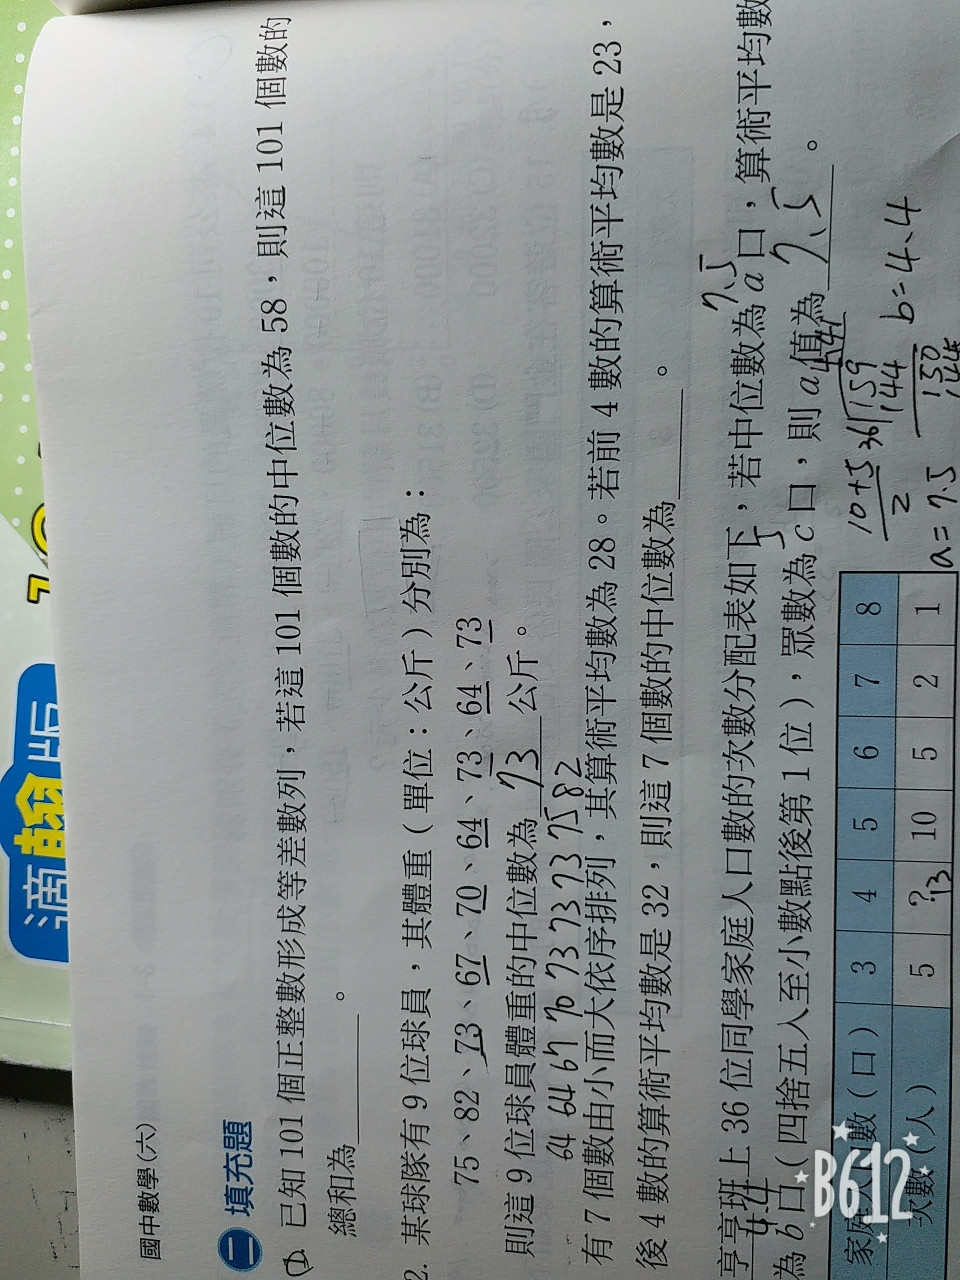 滴
翰版
國中數學(六)
二 填充題
1. 已知 101 個正整數形成等差數列,若這 101 個數的中位數為 58,則這 101 個數的
總和為 。
2. 某球隊有 9 位球員,其體重(單位:公斤)分別為:
75、82、73、67、70、64、73、64、73
則這 9 位球員體重的中位數為 73 公斤。
64 64 67 70 73 73 73 75 82
有 7 個數由小而大依序排列,其算術平均數為 28。若前 4 數的算術平均數是 23,
後 4 數的算術平均數是 32,則這 7 個數的中位數為 。
7.5
亨亨班上 36 位同學家庭人口數的次數分配表如下,若中位數為 a 口,算術平均數
4.4 5
為 b 口(四捨五入至小數點後第 1 位),眾數為 c 口,則 a 值為 7.5 。
家庭 數(口) 3 4 5 6 7 8
次數(人) 5 ? 10 5 2 1
13
10+5
2
a=7.5
4.41
36 159
144
150
144
b=4.4
B612